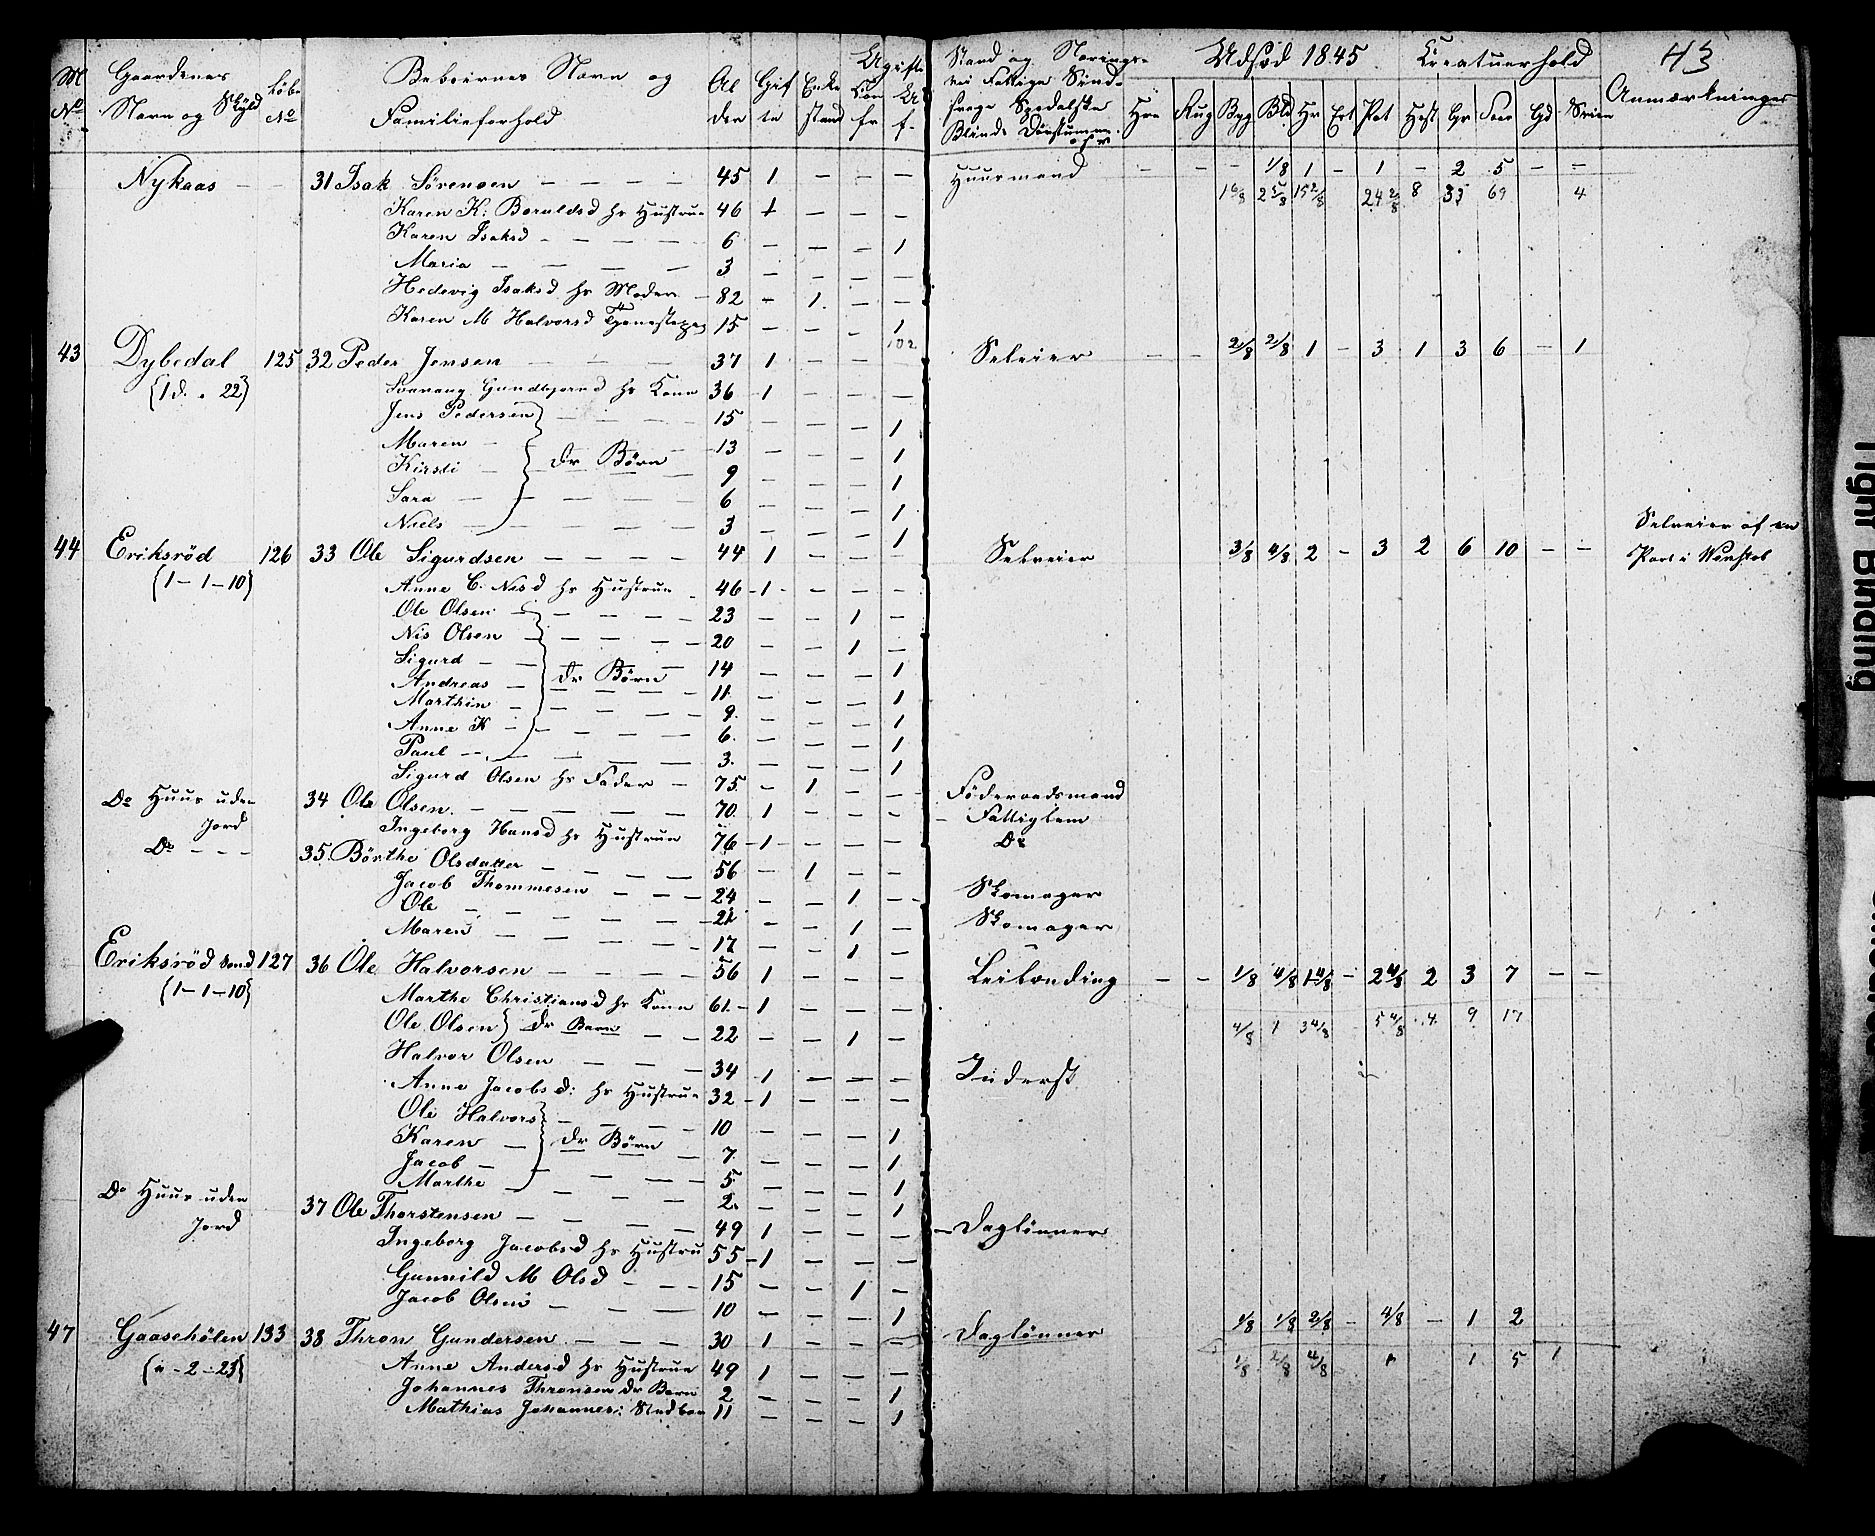 M No Gaardenes Navn og Skyld Løbe No Beboernes Navn og Familieforhold Al der Gif te Enke stand Ugifte Kon fr Stand og Nærings- vei Fattige Sinds- svage Spedalske Blinde Døvstumme Udsæd 1845 Hve Rug Byg Bld Hv Ert Pot Creaturhold Hest Faar Gd Sviin 43 Anmærkninger
Nykaas — — 31 Isak Sørensen — — — — 45 1 — — — Huusmand — — — 1/8 1 — 1 — 2 5 — —
Karen K: Boruldsd hs Hustrue 46 1 — — — 1 6/8 2 5/8 15 2/8 24 2/8 8 33 69 4
Karen Isaksd — — — — 6 — — — 1
Maria — — — — 3 — — — —
Hedevig Isaksd hs Moder — 82 — 1 — —
Karen M Halvorsd Tjenestepig 15 — — — 1
102
43 Dybedal 125 32 Peder Jensen — — — 37 1 — — Selveier — — 2/8 2/8 1 — 3 1 3 6 — 1
{1 d. „ 22} Gundbjørnd hs Kone 36 1 — — —
Jens Pedersen — — — 15 — — — 1
Maren — 13 — — — 1
Kirsti — dr Børn 9 — — — 1
Sara — — — — 6 — — — 1
Niels — — — — 3 — — — 1
44 Eriksrød 126 33 Ole Sigurdsen — — — — 44 1 — — — Selveier 3/8 4/8 2 — 3 2 6 10 — — Selveier af en Part i
{1 — 1 — 10} Anne C. Nisd hs Hustrue 46 1 — — —
Ole Olsen — — — — 23 — — 1 —
Nis Olsen — — — — 20 — — 1 —
Sigurd — 14 — — — 1
Andreas — dr Børn 11 — — — 1
Marthin — — — — 9. — — — 1
Anne K — — — — 6. — — — 1
Paul — — — — 3. — — — 1
Sigurd Olsen hs Fader — 75. — 1 — — Föderaadsmand
Do Huus uden Jord 34 Ole Olsen. — — — — 70. 1 — — — Fattiglem
Ingeborg Hansd hs Hustrue 76 1 — — — Do
Do — — — 35. Börthe Olsdatter — — — 56 — 1 — —
Jacob Thommesen — — — 24 — — 1 — Skomager
Ole — — — — 22 — — 1 — Skomager
Maren — — — — 17 — — 1 —
Eriksrød 127 36 Ole Halvorsen — — — 56 1 — — — Leilænding — — 1/8 4/8 1 4/8 — 2 4/8 2 3 7 — —
{1 — 1 — 10} Marthe Christiansd hs Kone 61 1 — — —
Ole Olsen} dr Barn — — 22 — — 1 — 4/8 1 3 4/8 5 4/8 4. 9 17
Halvor Olsen — — — 34 1 — — — Inderst
Anne Jacobsd: hs Hustrue 32 1 — — —
Ole Halvors — — — 10 — — — 1
Karen — dr Børn 7. — — — 1
Jacob — — — — 5 — — — 1
Marthe — — — — 2. — — — 1
Do Huus uden Jord 37 Ole Thorstensen — — — — 49 1 — — — Daglönner
Ingeborg Jacobsd hs Hustru 55 1 — — —
Gunnild M Olsd — — — 15 — — 1 —
Jacob Olsen — — — — 10 — — — 1
47 Gaaseholen 133 38 Thron Gundersen. — — — 30 1 — — — Daglönner 1/8 1/8 2/8 — 4/8 — 1 2
Anne Andersd hs Hustrue 49 1 — — — 1/8 2/8 4/8 1 1 5 1
Johannes Thronsen dr Barn 2 — — — 1
Mathias Johannes: 11 — — — 1